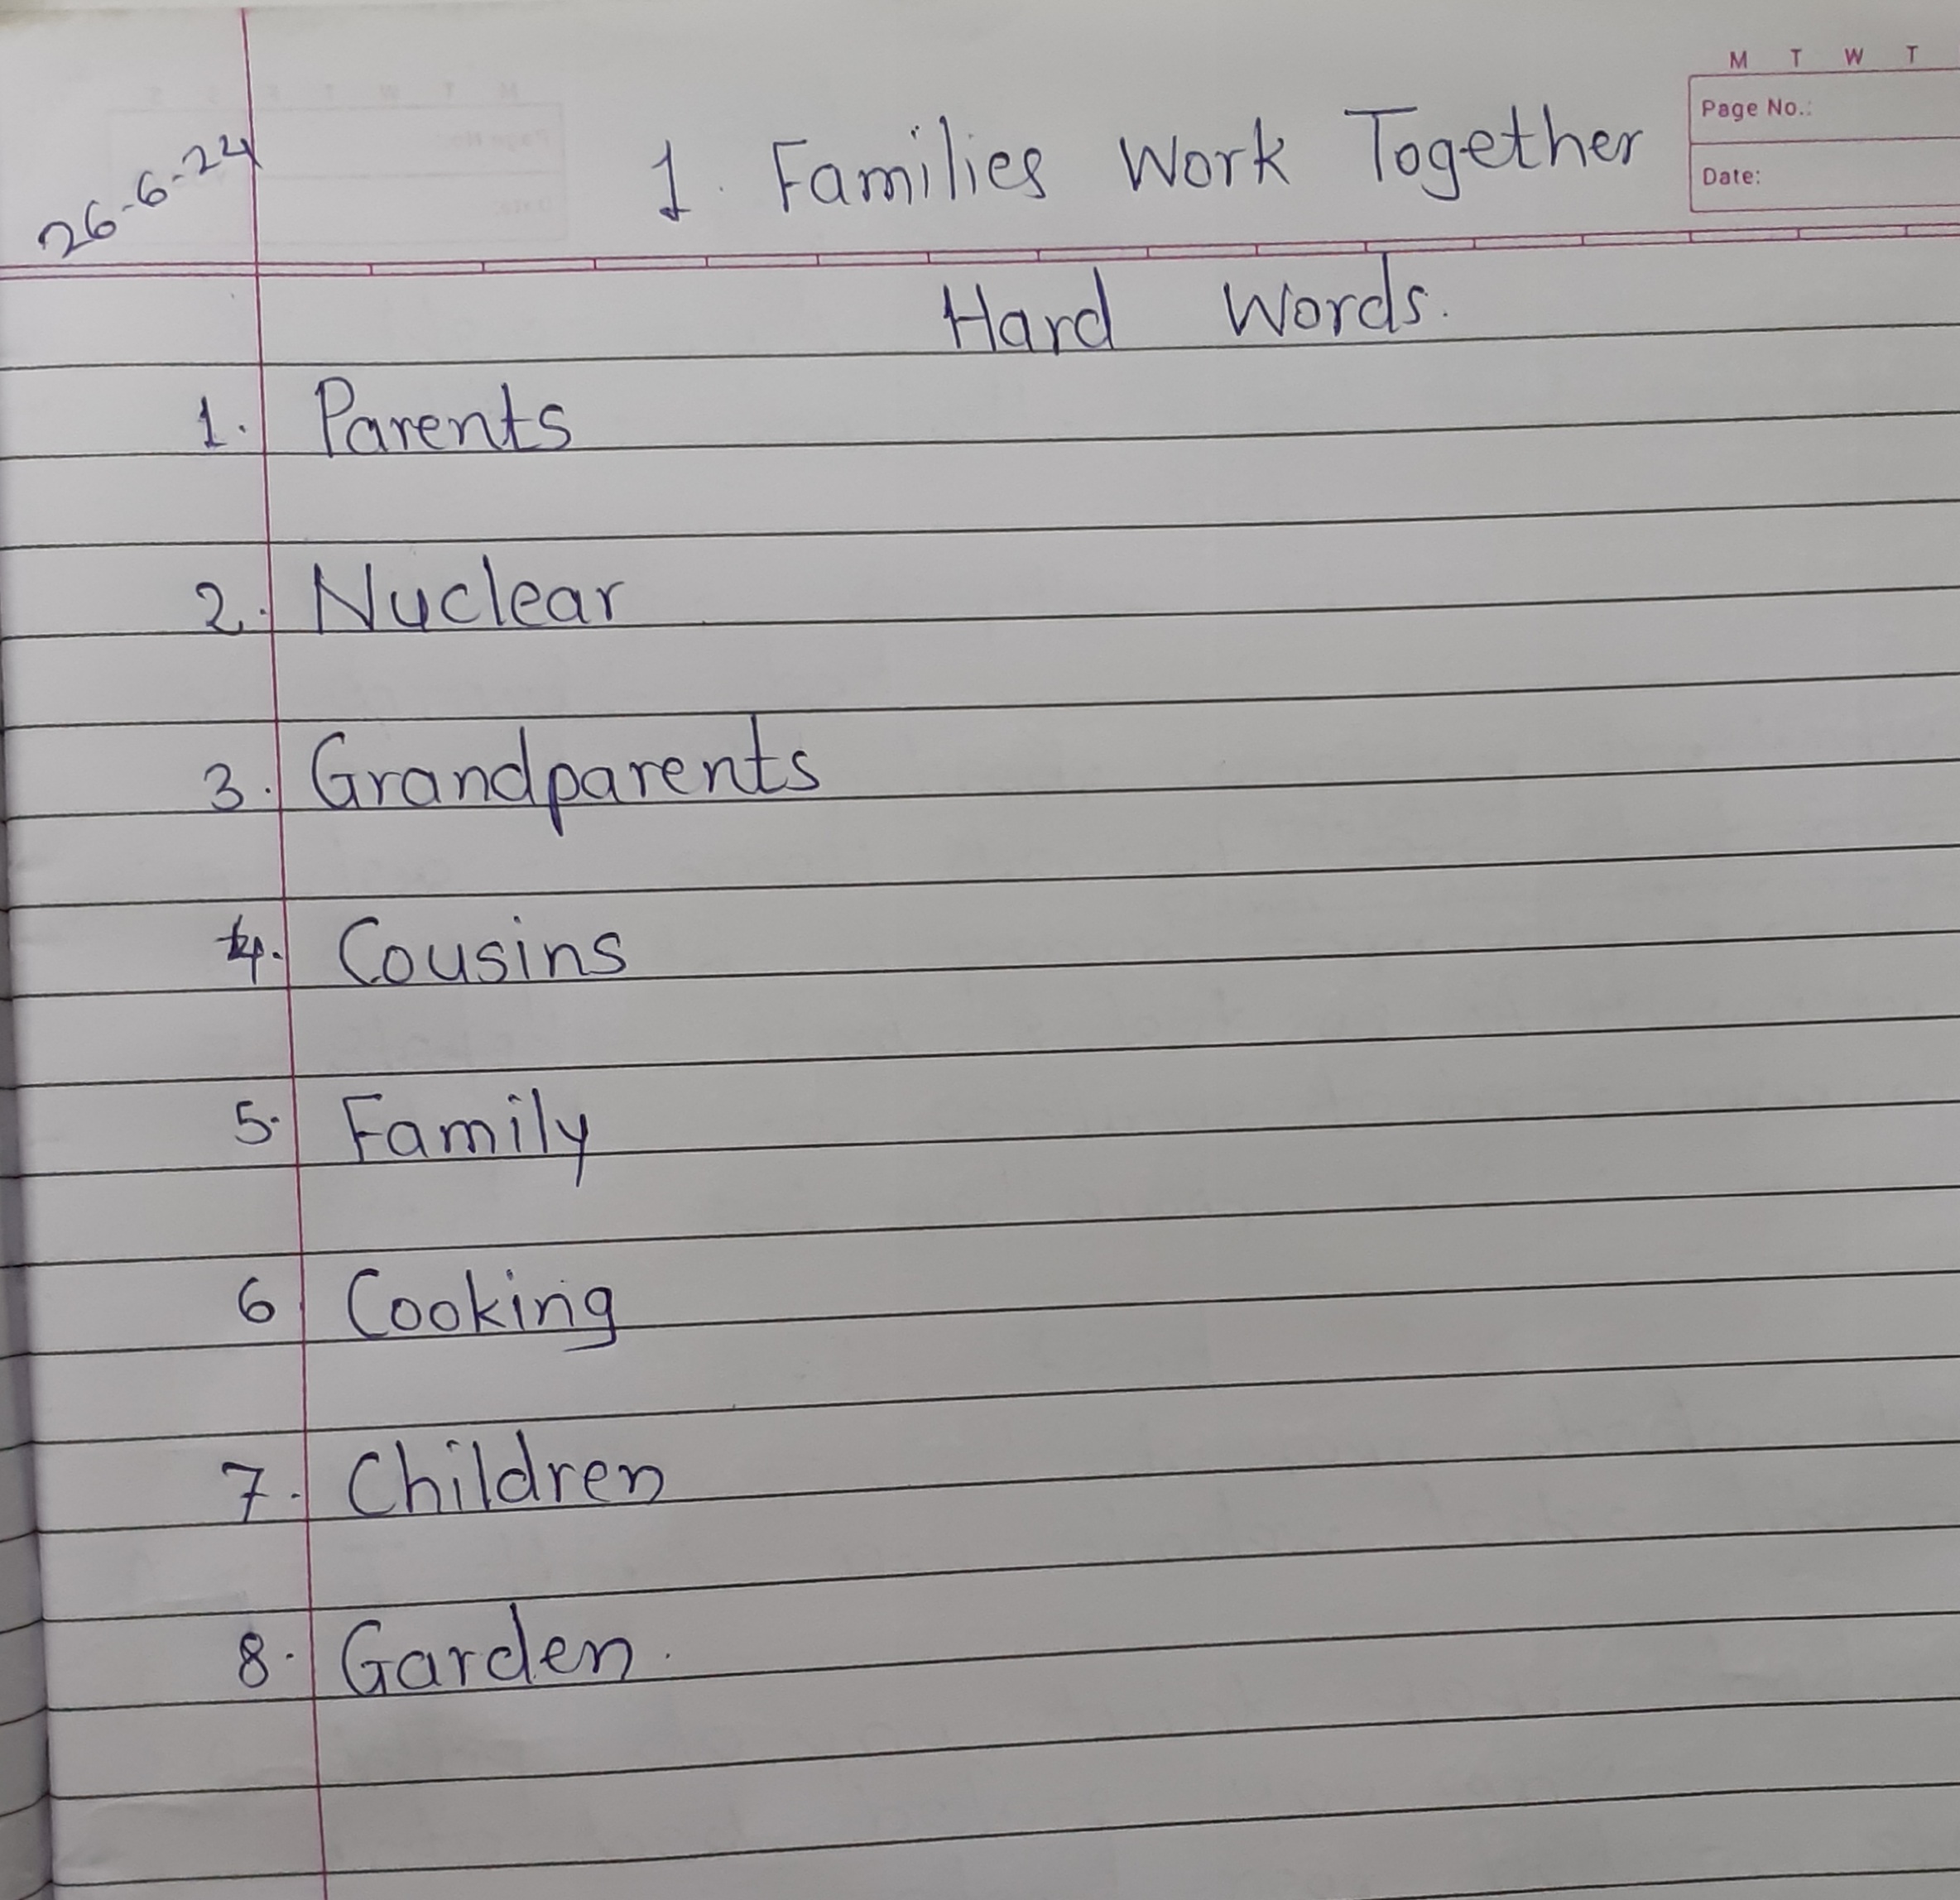 M T W T
Page No.:
Date:
26-6-24
1. Families Work Together
Hard Words.
1. Parents
2. Nuclear
3. Grandparents
4. Cousins
5. Family
6. Cooking
7. Children
8. Garden.